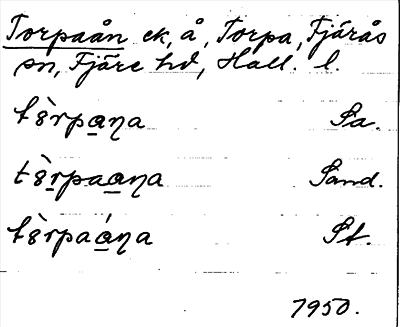 Torpaån ek, å, Torpa, Fjärås
sn, Fjäre hd, Hall. l.
tèrpa̲ŋa Sa.
tèr̲paa̲ŋa Sand.
tèrpaá̲ŋa St.
1950.